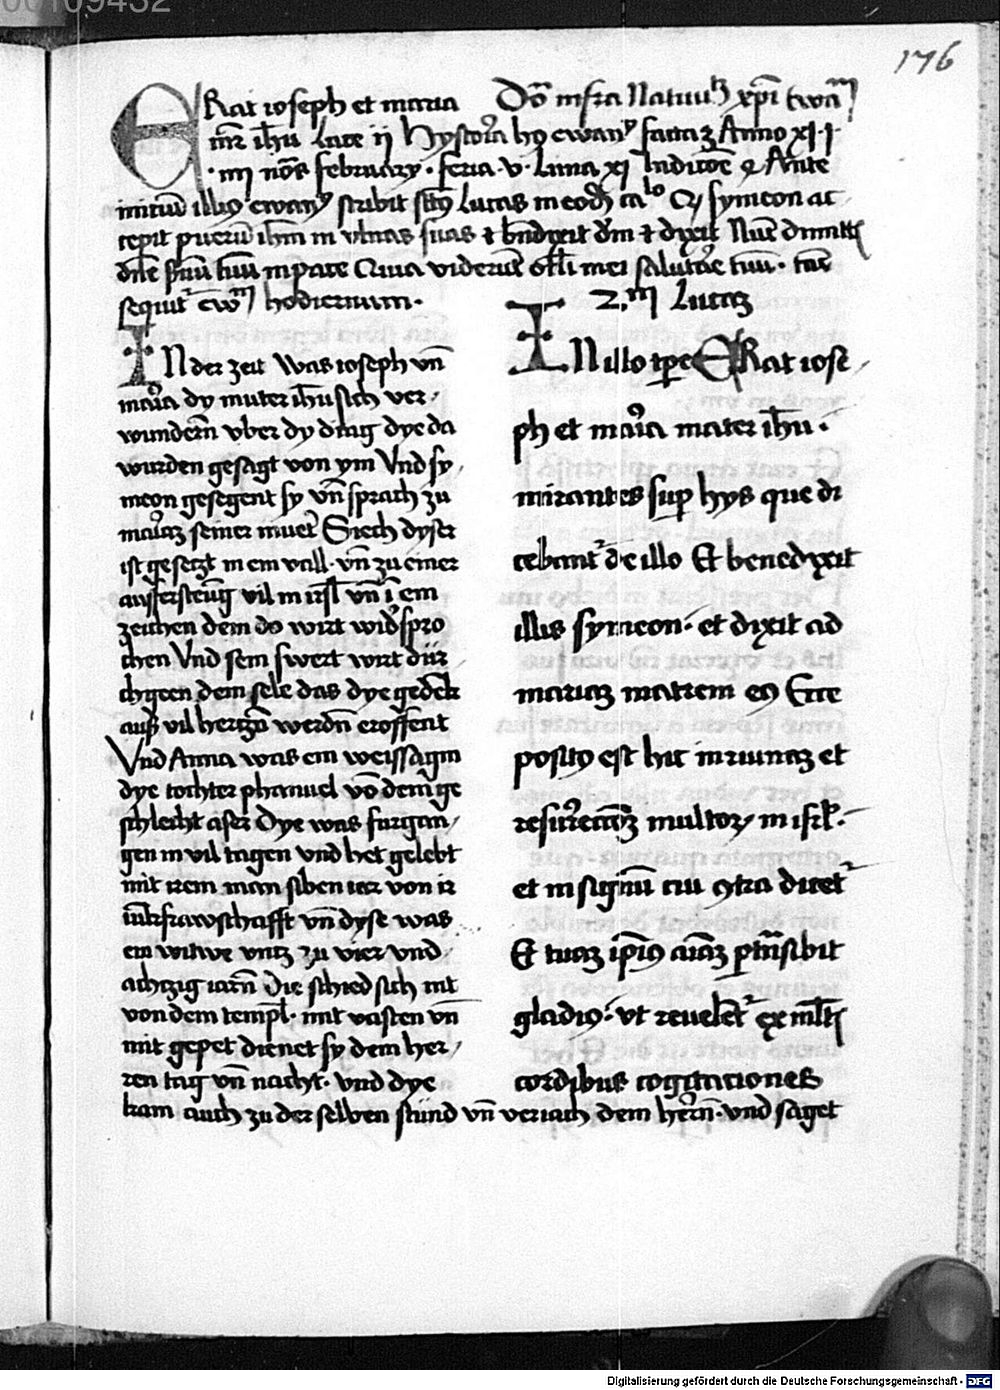 176
ERat ioseph et maria Dō infra Natiuit xpi ewām
mr̄ ihū Luce ij Hystoria hꝰ ewanꝰ facta ꝫ Anno xj·j·
·iiij nōs february · feria · v · Luna xj Indictōe Ante
initiū illiꝰ ewanꝰ scribit sctꝰ Lucas in eodē calo Qꝫ symeon ac
cepit puerū ihm in vlnas suas ⁊ bndixit dm ⁊ dixit Nūc dimittꝭ
dn̄e ẜuū tuū in pace Quia viderūt ocli mei salutāre tuū · tūc
sequitr ewm̄ hodiernum ·
2m Lucaꝫ
IN der zeit Was ioseph vn̄
maria dy muter ihū sich ver
wundern̄ vber dy ding dye da
wurden gesagt von ym Vnd sy
meon gesegent sy vn̄ sprach zu
mariaꝫ seiner muet̄ Siech dyser
ist gesetzt in ein vall · vn̄ zu einer
aufersteūg vil in isrl vn̄ ī ein
zeichen dem do wirt wid̄spro
chen Vnd sein swert wirt dur
chgeen dein sele das dye gedēck
auß vil hertzn̄ werdn̄ eroffent
Vnd Anna was ein weissagin
dye tochter phanuel vō dem ge
schlecht aser Dye was furgan
gen in vil tagen vnd het gelebt
mit irem man siben iar von ir
iūkfrawschafft vn̄ dyse was
ein witwe vntz zu vier vnd
achtzig iarn̄ Die schied sich nit
von dem templ · mit vasten vn̄
mit gepet dienet sy dem her
ren tag vn̄ nacht · vnd dye
kam auch zu der selben stund vn̄ veriach dem hern̄ · vnd saget
IN illo tp̄e ERat iose
ph et maria mater ihū ·
mirantes sup̄ hys que di
cebantr de illo Et benedixit
illis symeon · et dixit ad
mariaꝫ matrem eꝰ Ecce
positꝰ est hic in ruinaꝫ et
resurrecc̄oꝫ multoꝝ in isrl ·
et in signū cui ꝯtra dicetr
Et tuaꝫ ip̄iꝰ aīaꝫ ꝑtn̄sibit
gladiꝰ · vt reueletr ex mltꝭ
cordibus cogitaciones
Digitalisierung gefördert durch die Deutsche Forschungsgemeinschaft - DFG